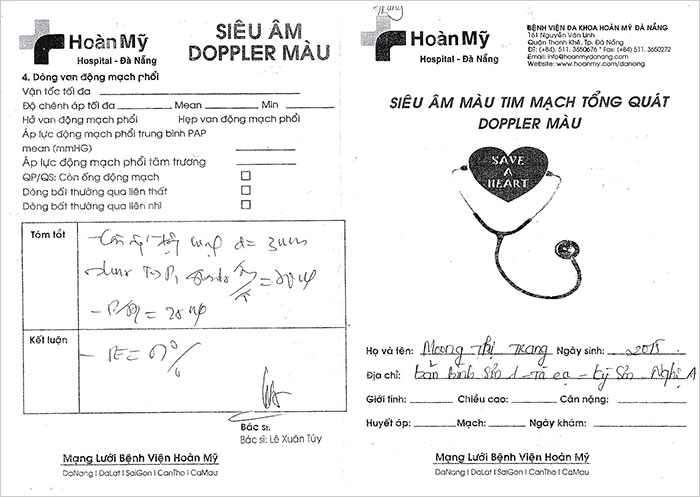 Hoàn Mỹ
Hospital - Đà Nẵng
SIÊU ÂM
DOPPLER MÀU
4. Dòng van động mạch phổi
Vận tốc tối đa
Độ chênh áp tối đa Mean Min
Hở van động mạch phổi Hẹp van động mạch phổi
Áp lực động mạch phổi trung bình PAP
mean (mmHG)
Áp lực động mạch phổi tâm trương
QP/QS: Còn ống động mạch
Dòng bất thường qua liên thất
Dòng bất thường qua liên nhĩ
Tóm tắt
Còn ống động mạch d= 3mm
Kết luận
Bác sĩ:
Bác sĩ: Lê Xuân Túy
Mạng Lưới Bệnh Viện Hoàn Mỹ
DaNang I DaLat I SaiGon I CanTho I CaMau
Trang
Hoàn Mỹ
Hospital - Đà Nẵng
BỆNH VIỆN ĐA KHOA HOÀN MỸ ĐÀ NẴNG
161 Nguyễn Văn Linh
Quận Thanh Khê, Tp. Đà Nẵng
ĐT: (+84) 511. 3650676 * Fax: (+84) 511. 3650272
Email: info@hoanmydanang.com
Website: www.hoanmy.com/danang
SIÊU ÂM MÀU TIM MẠCH TỔNG QUÁT
DOPPLER MÀU
SAVE
A
HEART
Họ và tên: Moong Thị Trang Ngày sinh: 2015
Địa chỉ: bản Bình Sơn 1 - Tà cạ - Kỳ Sơn - Nghệ A
Giới tính: Chiều cao: Cân nặng:
Huyết áp: Mạch: Ngày khám:
Mạng Lưới Bệnh Viện Hoàn Mỹ
DaNang I DaLat I SaiGon I CanTho I CaMau